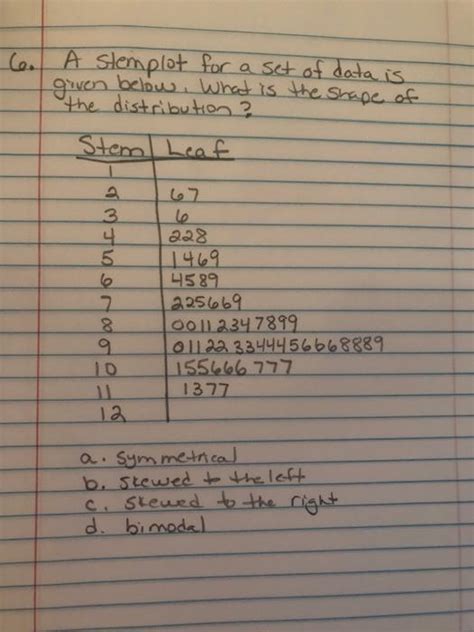 6. A stemplot for a set of data is
given below. What is the shape of
the distribution?
Stem | Leaf
1
2 67
3 6
4 228
5 1469
6 4589
7 225669
8 00112347899
9 011223344456668889
10 155666777
11 1377
12
a. symmetrical
b. skewed to the left
c. skewed to the right
d. bimodal